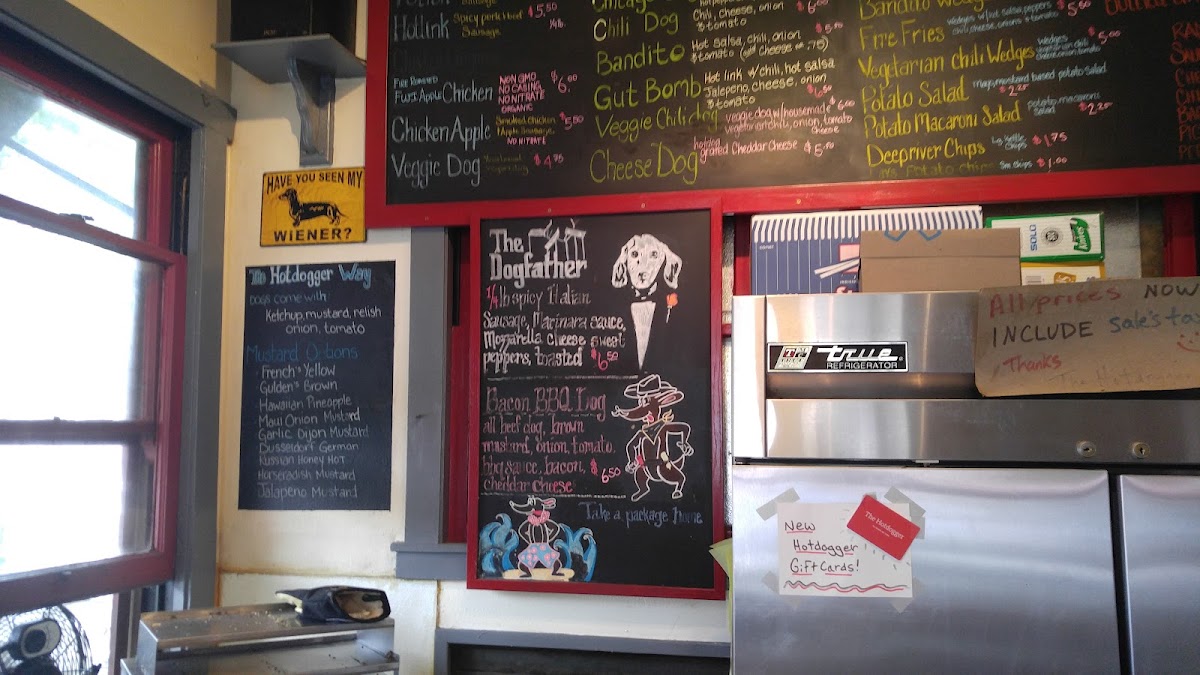 Hotlink Spicy pork + beef $5.50
Sausage 1/4 lb.
Fire Roasted
Fuji Apple Chicken NON GMO $6.00
NO CASING
NO NITRATE
ORGANIC
Chicken Apple Smoked chicken $5.50
Apple Sausage
NO NITRATE
Veggie Dog $4.75
Chili Dog Chili, cheese, onion $5.50
& tomato
Bandito Hot salsa, chili, onion
& tomato (add cheese .75)
Gut Bomb Hot link w/chili, hot salsa
Jalepeno, cheese, onion
& tomato $6.50
Veggie Chili dog veggie dog w/housemade $6.00
vegetarian chili, onion, tomato
cheese
Cheese Dog hotdog
grated Cheddar cheese $5.50
Bandito Wedges
Wedges w/hot salsa, peppers $5.50
Fire Fries chili, cheese, onions & tomato
Vegetarian chili Wedges Wedges
vegetarian chili $5.00
cheese, onion, tomato
Potato Salad mayo, mustard based potato salad
$2.25
Potato Macaroni Salad potato, macaroni
Salad $2.25
Deepriver Chips Lg. Kettle $1.75
Chips
Lays Potato chips Sm. chips $1.00
HAVE YOU SEEN MY
WIENER?
The Hotdogger Way
Dogs come with
Ketchup, mustard, relish
onion, tomato
Mustard Options
French's Yellow
Gulden's Brown
Hawaiian Pineapple
Maui Onion Mustard
Garlic Dijon Mustard
Dusseldorf German
Russian Honey Hot
Horseradish Mustard
Jalapeno Mustard
The
Dogfather
1/4 lb spicy Italian
Sausage, Marinara sauce,
Mozzarella cheese sweet
peppers, toasted $6.50
Bacon BBQ Dog
all beef dog, brown
mustard, onion, tomato,
bbq sauce, bacon, $6.50
cheddar cheese
Take a package home
SOLO
All prices NOW
INCLUDE sales ta
Thanks
The Hotdogger
true
REFRIGERATOR
New
Hotdogger
Gift Cards!
The Hotdogger